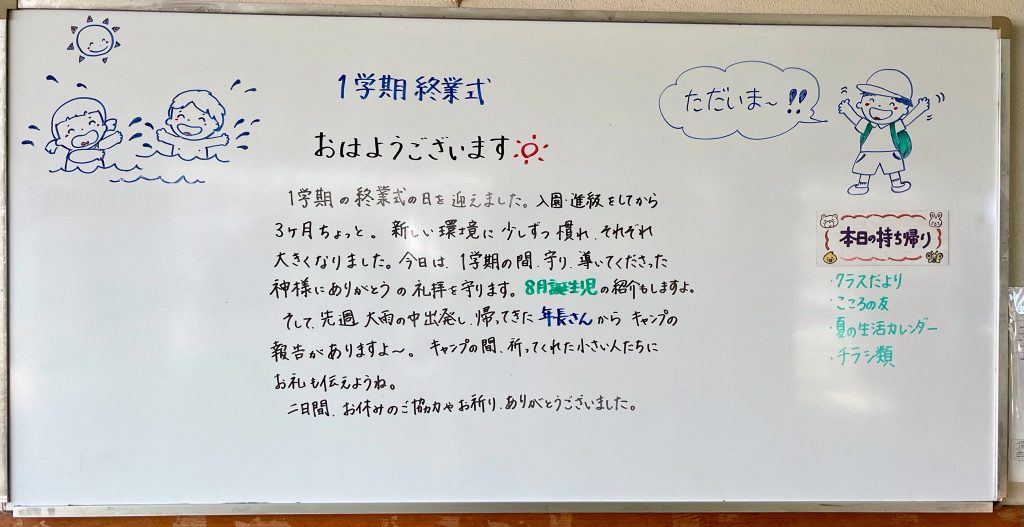 1学期 終業式
ただいま〜!!
おはようございます
1学期の終業式の日を迎えました。入園・進級をしてから
3ヶ月ちょっと。新しい環境に少しずつ慣れ、それぞれ
大きくなりました。今日は、1学期の間、守り、導いてくださった
神様にありがとうの礼拝を守ります。8月誕生児の紹介もしますよ。
そして、先週 大雨の中出発し、帰ってきた 年長さんから キャンプの
報告がありますよ〜。キャンプの間、祈ってくれた小さい人たちに
お礼も伝えようね。
二日間、お休みのご協力やお祈り、ありがとうございました。
本日の持ち帰り
・クラスだより
・こころの友
・夏の生活カレンダー
・チラシ類